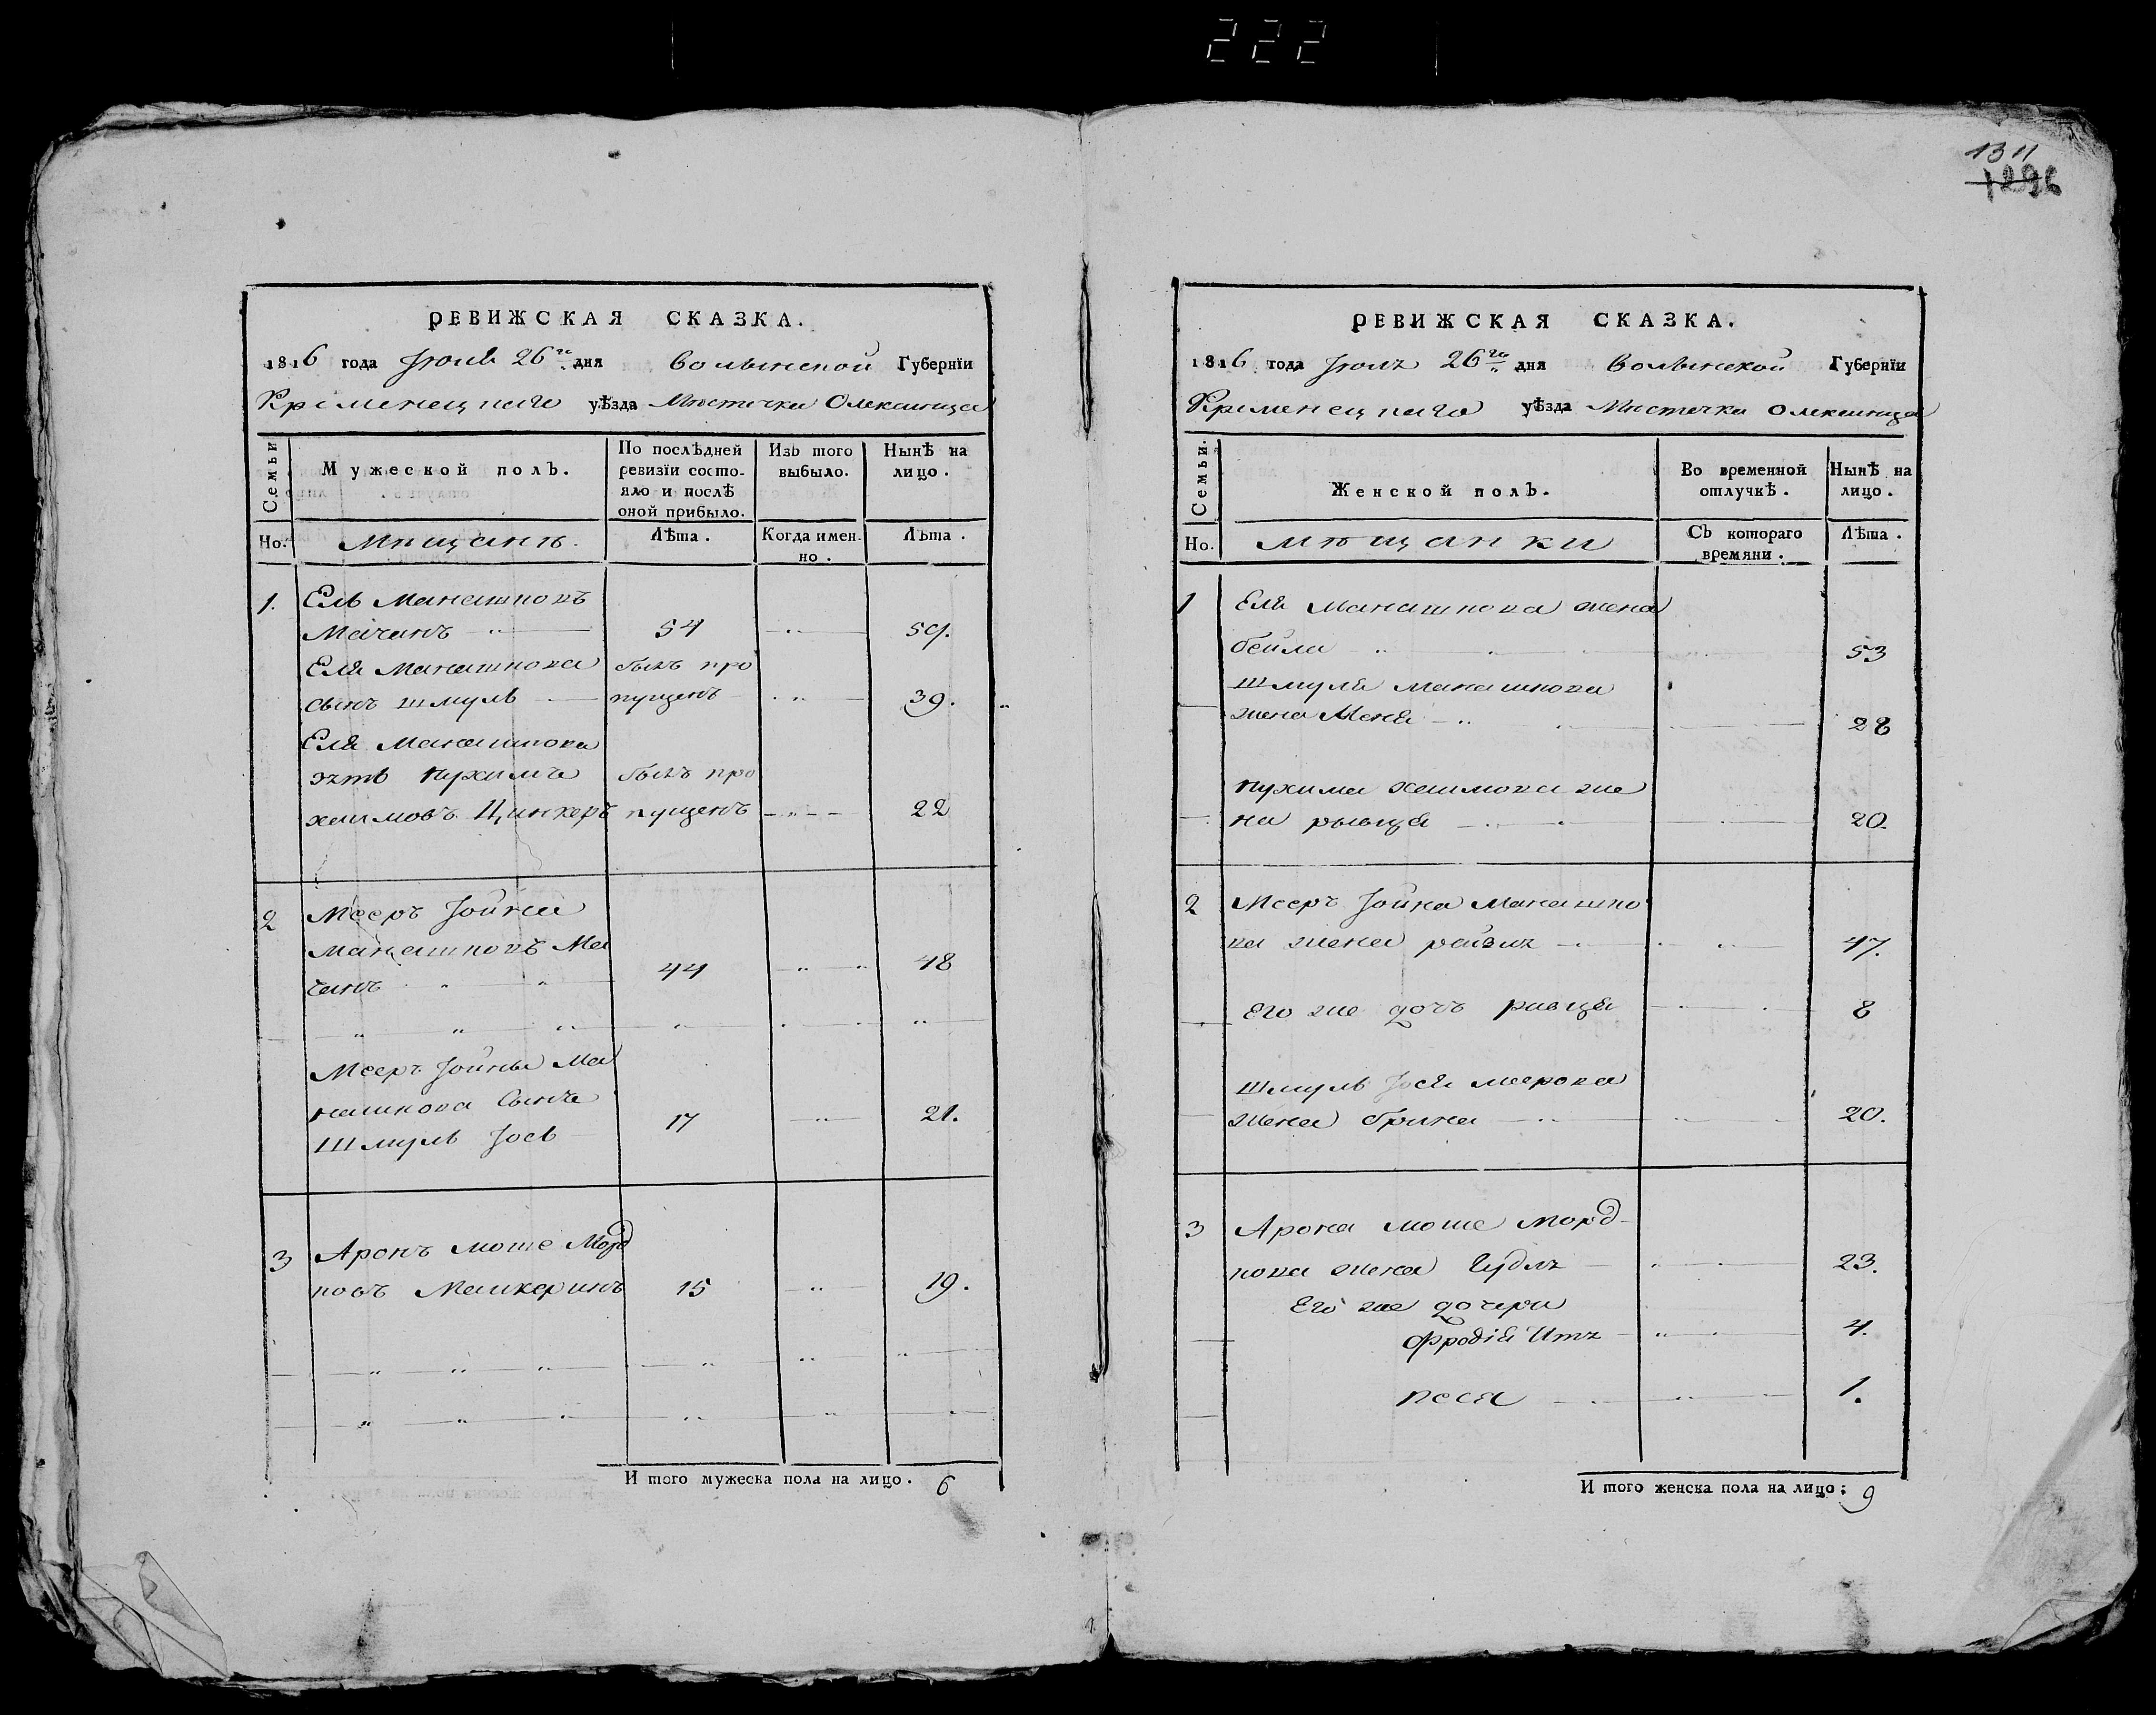 222
1311
1296
РЕВИЖСКАЯ СКАЗКА.
1816 года Іюля 26го дня Волынской Губернїи
Кременецкаго уѣзда Мистечка Олексинца
Семьи
Мужеской полъ.
По послѣдней ревизїи состояло и послѣ оной прибыло.
Изъ того выбыло.
Нынѣ на лицо.
Но.
Мѣщанъ.
Лѣта.
Когда именно.
Лѣта.
1. Ель Манашковъ
Мачанъ 54 59.
Еля Манашкова былъ про
сынъ Шмуль пущенъ 39.
Еля Манашкова
зять Нухимъ былъ про
хаимовъ Цинкеръ пущенъ 22
2 Мееръ Іойна
Манашковъ Ма
чанъ 44 48
Мееръ Іойны Ма
нашкова Сынъ
Шмуль Іось 17 21.
3 Аронъ Моше Морд
ковъ Машкеринъ 15 19.
И того мужеска пола на лицо. 6
РЕВИЖСКАЯ СКАЗКА.
1816 года Іюля 26го дня Волынской Губернїи
Кременецкаго уѣзда Мистечка Олексинца
Семьи.
Женской полъ.
Во временной отлучкѣ.
Нынѣ на лицо.
Но.
мѣщанки
Съ котораго времяни.
Лѣта.
1 Еля Манашкова жена
бейла 53
Шмуля Манашкова
жена Меня 28
Нухима хаимова же
на рывця 20.
2 Меера Іойна Манашко
ва жена райзля 47.
Его же дочь ривця 8
Шмуль Іося меерова
жена брина 20.
3 Арона моше морд-
кова жена Гудля 23.
Его же дочери
Фродія Итя 4.
песя 1.
И того женска пола на лицо: 9